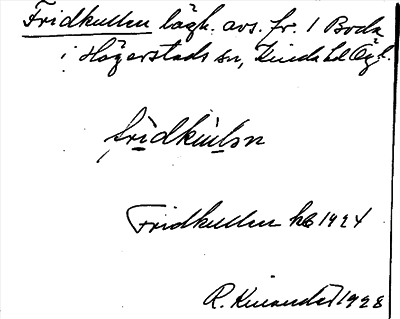 Fridkullen lägh. avs. fr. 1 Boda
i Högerstads sn, Kinda hd Ög.
fridkulen
Fridkullen hb 1924
R. Kinander 1928